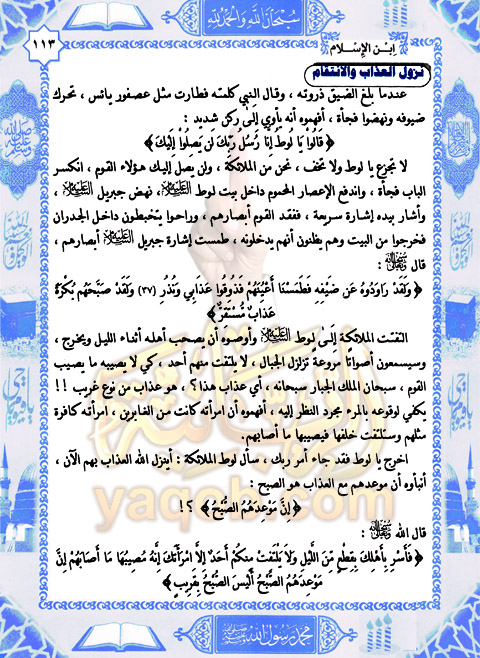 سبحان الله والحمد لله
١١٣
ابن الإسلام
نزول العذاب والانتقام
عندما بلغ الضيق ذروته ، وقال النبي كلمته فطارت مثل عصفور يائس ، تحرك
ضيوفه ونهضوا فجأة ، أفهموه أنه يأوي إلى ركن شديد :
﴿ قَالُوا يَا لُوطُ إِنَّا رُسُلُ رَبِّكَ لَن يَصِلُوا إِلَيْكَ ﴾
لا تجزع يا لوط ولا تخف ، نحن من الملائكة ، ولن يصل إليك هؤلاء القوم ، انكسر
الباب فجأة ، واندفع الإعصار المحموم داخل بيت لوط عليه السلام ، نهض جبريل عليه السلام ،
وأشار بيده إشارة سريعة ، ففقد القوم أبصارهم ، وراحوا يتخبطون داخل الجدران
فخرجوا من البيت وهم يظنون أنهم يدخلونه ، طمست إشارة جبريل عليه السلام أبصارهم ،
قال :
﴿ وَلَقَدْ رَاوَدُوهُ عَن ضَيْفِهِ فَطَمَسْنَا أَعْيُنَهُمْ فَذُوقُوا عَذَابِي وَنُذُرِ (٣٧) وَلَقَدْ صَبَّحَهُم بُكْرَةً
عَذَابٌ مُّسْتَقِرٌّ ﴾
التفتت الملائكة إلى لوط عليه السلام وأوصوه أن يصحب أهله أثناء الليل ويخرج ،
وسيسمعون أصواتاً مروعة تزلزل الجبال ، لا يلتفت منهم أحد ، كي لا يصيبه ما يصيب
القوم ، سبحان الملك الجبار سبحانه ، أي عذاب هذا ؟ ، هو عذاب من نوع غريب !!
يكفي لوقوعه بالمرء مجرد النظر إليه ، أفهموه أن امرأته كانت من الغابرين ، امرأته كافرة
مثلهم وستلتفت خلفها فيصيبها ما أصابهم.
اخرج يا لوط فقد جاء أمر ربك ، سأل لوط الملائكة : أينزل الله العذاب بهم الآن ،
أنبأوه أن موعدهم مع العذاب هو الصبح :
﴿ إِنَّ مَوْعِدَهُمُ الصُّبْحُ ﴾ ؟!
قال الله :
﴿ فَأَسْرِ بِأَهْلِكَ بِقِطْعٍ مِّنَ اللَّيْلِ وَلَا يَلْتَفِتْ مِنكُمْ أَحَدٌ إِلَّا امْرَأَتَكَ إِنَّهُ مُصِيبُهَا مَا أَصَابَهُمْ إِنَّ
مَوْعِدَهُمُ الصُّبْحُ أَلَيْسَ الصُّبْحُ بِقَرِيبٍ ﴾
yaqob.com
محمد رسول الله